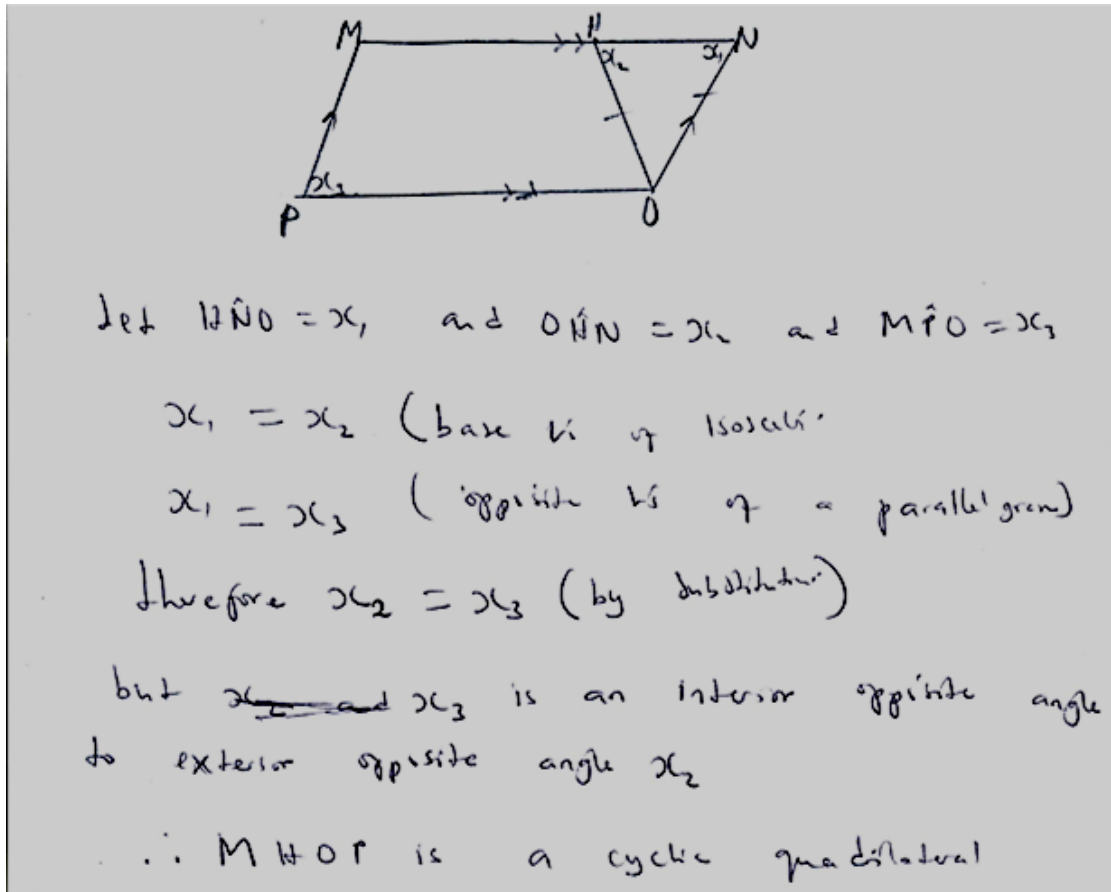 M H N
x₂ x₁
x₃
P O
Let HN̂O = x₁ and OĤN = x₂ and MP̂O = x₃
x₁ = x₂ (base of
x₁ = x₃ (opposite of a parallelgram)
therefore x₂ = x₃ (by substitution)
but x₃ is an interior opposite angle
to exterior opposite angle x₂
∴ MHOP is a cyclic quadrilateral